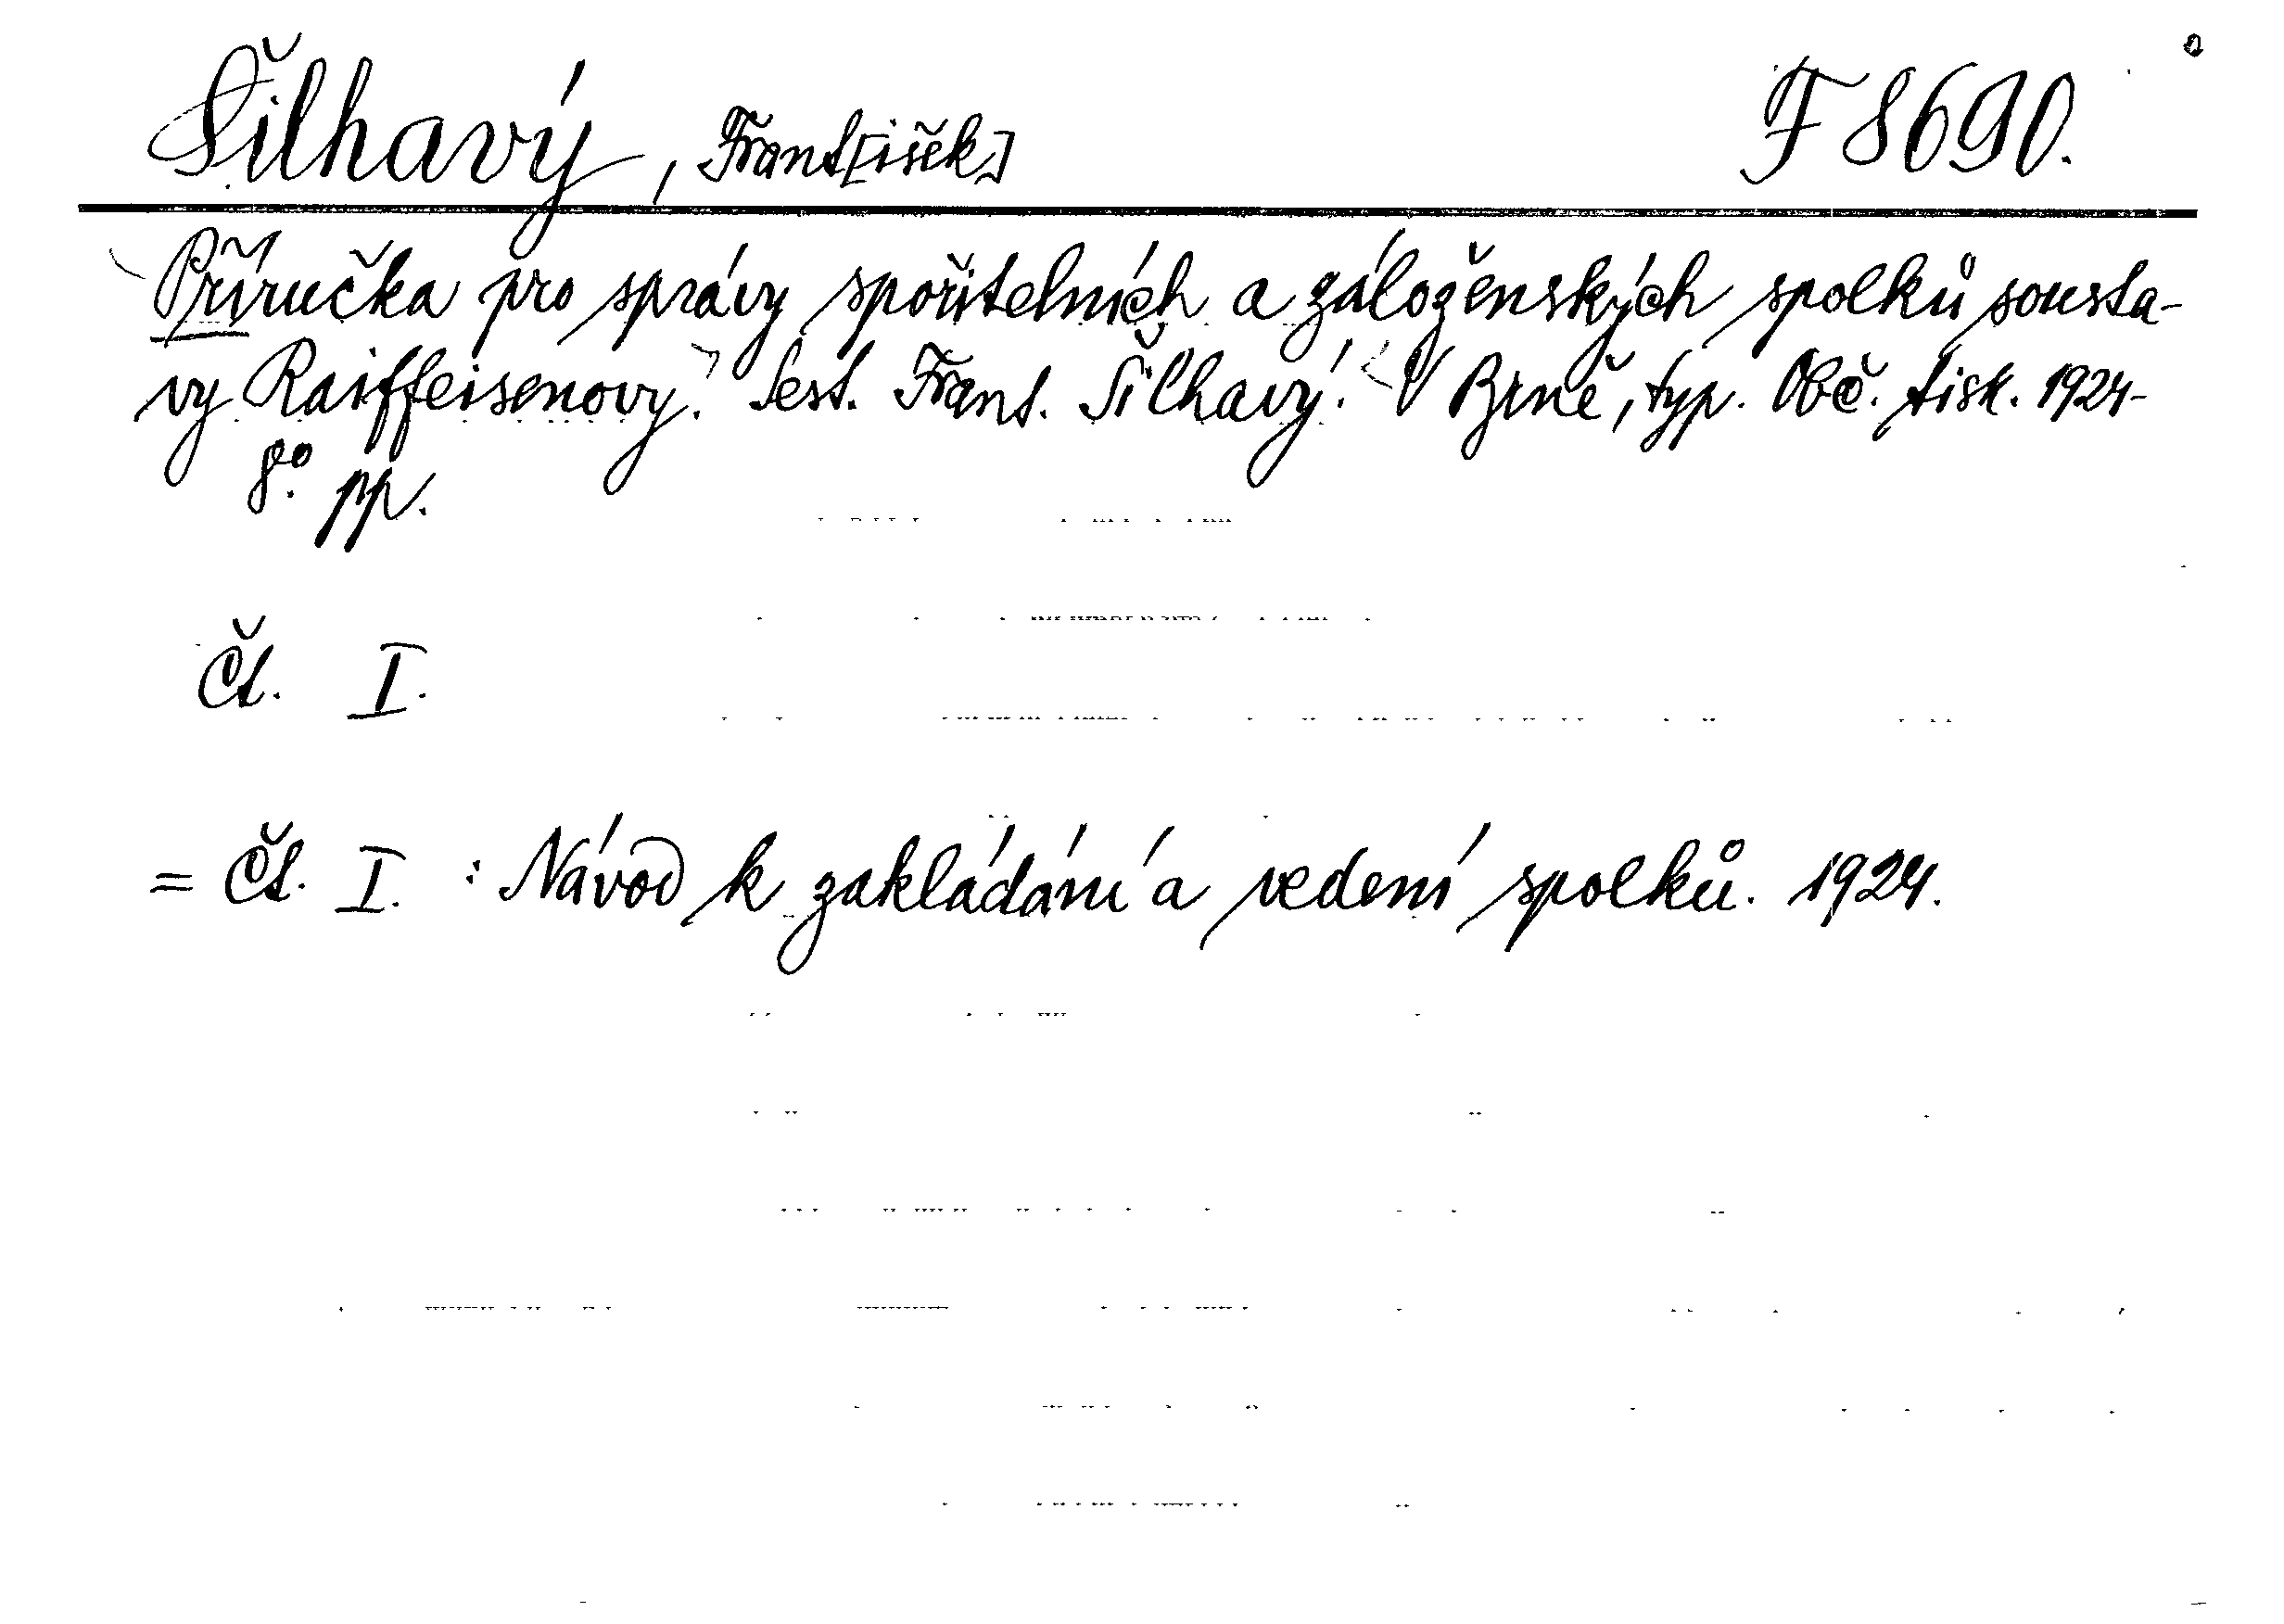 Šilhavý, Frant[išek] F 8690.
Příručka pro správy spořitelních a záloženských spolků sousta-
vy Raiffeisenovy. Sest. Frant. Šilhavý. V Brně, typ. Obč. tisk. 1924-
8° pp.
Čt. I.
= Čt. I. : Návod k zakládání a vedení spolků. 1924.